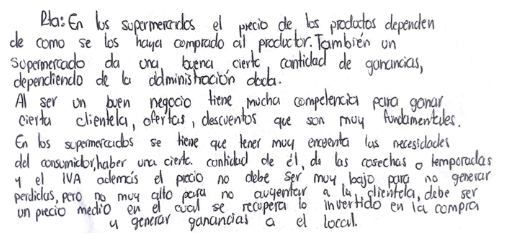 Rta: En los supermercados el precio de los productos dependen
de como se los haya comprado al productor. También un
Supermercado da una buena cierta cantidad de ganancias,
dependiendo de la administración dada.
Al ser un buen negocio tiene mucha competencia para ganar
cierta clientela, ofertas, descuentos que son muy fundamentales.
En los supermercados se tiene que tener muy encuenta las necesidades
del consumidor, haber una cierta cantidad de él, de las cosechas o temporadas
y el IVA además el precio no debe ser muy bajo para no generar
perdidas, pero no muy alto para no augentar a la clientela, debe ser
un precio medio en el cual se recupera lo invertido en la compra
y generar ganancias a el local.